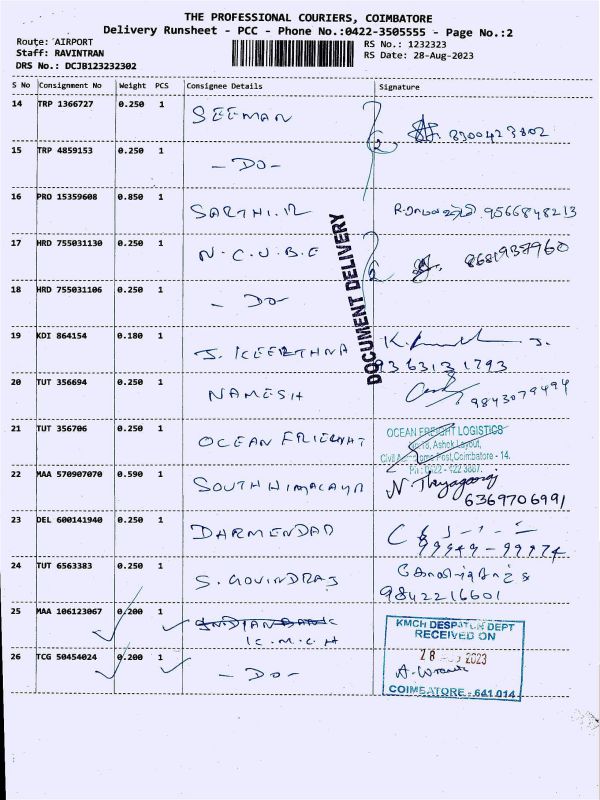 THE PROFESSIONAL COURIERS, COIMBATORE
Delivery Runsheet - PCC - Phone No.:0422-3505555 - Page No.:2
Route: AIRPORT RS No.: 1232323
Staff: RAVINTRAN RS Date: 28-Aug-2023
DRS No.: DCJB123232302
S No Consignment No Weight PCS Consignee Details Signature
14 TRP 1366727 0.250 1 SEEMAN 8300423802
15 TRP 4859153 0.250 1 - DO -
16 PRO 15359608 0.850 1 SARTHI.R 9566848213
17 HRD 755031130 0.250 1 N.C.U.B.E 8681937960
18 HRD 755031106 0.250 1 - DO -
DOCUMENT DELIVERY
19 KDI 864154 0.180 1 J. KEERTHNA 9363131793
20 TUT 356694 0.250 1 NAMESH 9843079494
21 TUT 356706 0.250 1 OCEAN FRIEGHT
OCEAN FREIGHT LOGISTICS
Ashok Layout,
Civil Post, Coimbatore - 14.
22 MAA 570907070 0.590 1 SOUTH HIMALAYA N. Thyagaraj
6369706991
23 DEL 600141940 0.250 1 DARMENDAD
99949-99974
24 TUT 6563383 0.250 1 S. GOVINDRAJ
9842216601
25 MAA 106123067 0.200 1 INDIAN BANK
K.M.C.H
KMCH DESPATCH DEPT
RECEIVED ON
26 TCG 50454024 0.200 1 - DO -
28 2023
COIMBATORE - 641 014